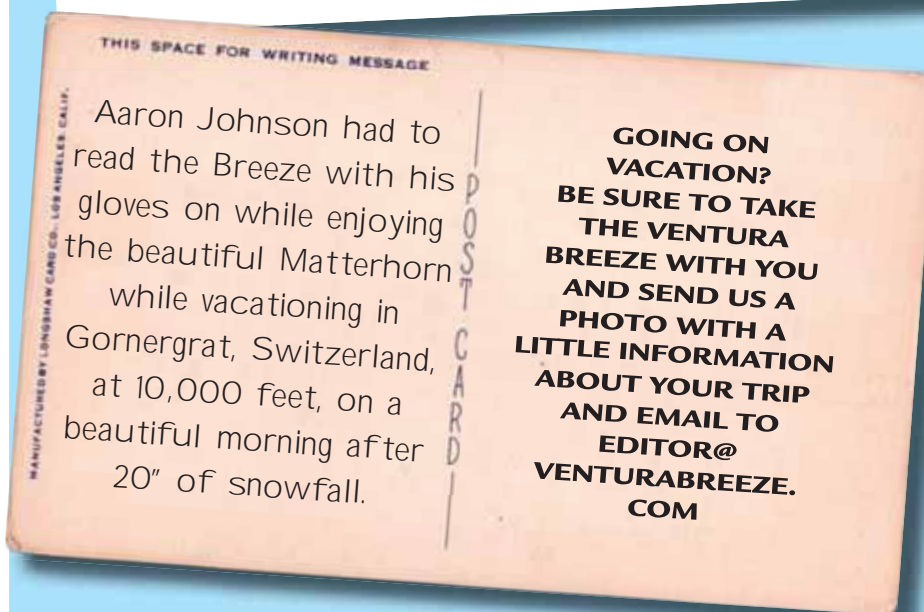 THIS SPACE FOR WRITING MESSAGE
MANUFACTURED BY LONGSHAW CARD CO., LOS ANGELES, CALIF.
Aaron Johnson had to
read the Breeze with his
gloves on while enjoying
the beautiful Matterhorn
while vacationing in
Gornergrat, Switzerland,
at 10,000 feet, on a
beautiful morning after
20" of snowfall.
POST CARD
GOING ON
VACATION?
BE SURE TO TAKE
THE VENTURA
BREEZE WITH YOU
AND SEND US A
PHOTO WITH A
LITTLE INFORMATION
ABOUT YOUR TRIP
AND EMAIL TO
EDITOR@
VENTURABREEZE.
COM